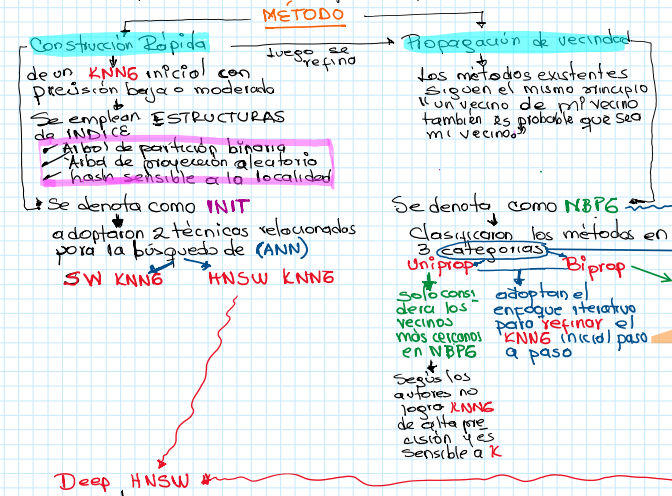 MÉTODO
Construcción Rápida
luego se
refina
Propagación de vecindad
de un KNNG inicial con
precisión baja o moderado
Se emplean ESTRUCTURAS
de INDICE
Arbol de partición binaria
Arbol de proyección aleatorio
hash sensible a la localidad
Se denota como INIT
adoptaron 2 técnicas relacionados
para la búsquedo de (ANN)
SW KNNG
HNSW KNNG
Deep HNSW
Los métodos existentes
siguen el mismo principio
"un vecino de mi vecino
también es probable que sea
mi vecino"
Se denota como NBPG
Clasificaron los métodos en
3 categorías
Uniprop
Biprop
solo consi
dera los
vecinos
más cercanos
en NBPG
adoptan el
enfoque iterativo
para refinar el
KNNG inicial paso
a paso
Según los
autores no
logra KNNG
de alta pre
cisión y es
sensible a K